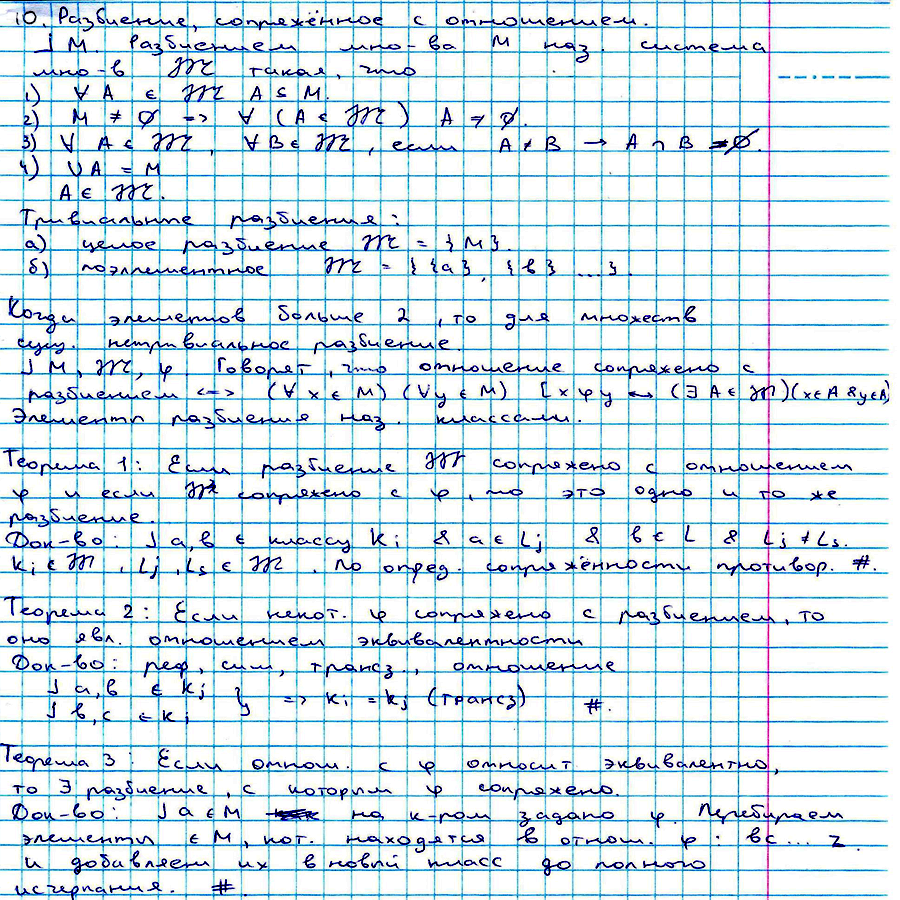 10. Разбиение, сопряжённое с отношением.
] M. Разбиением мно-ва M наз. система
мно-в 𝔐 такая, что
1) ∀ A ∈ 𝔐 A ⊆ M.
2) M ≠ ∅ => ∀ (A ∈ 𝔐) A ≠ ∅.
3) ∀ A ∈ 𝔐, ∀ B ∈ 𝔐, если A ≠ B → A ∩ B = ∅.
4) ∪A = M
A ∈ 𝔐.
Тривиальные разбиения:
а) целое разбиение 𝔐 = {M}.
б) поэллементное 𝔐 = {{a}, {b} ...}.
Когда элеметов больше 2, то для множеств
сущ. нетривиальное разбиение.
] M, 𝔐, φ Говорят, что отношение сопряжено с
разбиением <=> (∀x ∈ M) (∀y ∈ M) [x φ y ↔ (∃ A ∈ 𝔐)(x∈A & y∈A)
Элементы разбиения наз. классами.
Теорема 1: Если разбиение 𝔐 сопряжено с отношением
φ и если 𝔐 сопряжено с φ, то это одно и то же
разбиение.
Док-во: ] a,b ∈ классу Ki & a ∈ Lj & b ∈ L & Lj ≠ Ls.
Ki ∈ 𝔐, Lj, Ls ∈ 𝔐. По опред. сопряжённости противор. #.
Теорема 2: Если некот. φ сопряжено с разбиением, то
оно явл. отношением эквивалентности
Док-во: реф, сим, транз., отношение
] a,b ∈ Kj
] b,c ∈ Ki } => Ki = Kj (транз) #.
Теорема 3: Если отнош. с φ относит эквивалентно,
то ∃ разбиение, с которым φ сопряжено.
Док-во: ] a ∈ M на к-ром задано φ. Перебираем
элементы ∈ M, кот. находятся в отнош. φ: bc... z
и добавляем их в новый класс до полного
исчерпания. #